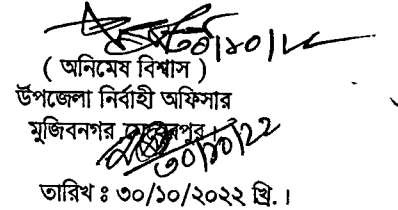 ৩০/১০/২২
( অনিমেষ বিশ্বাস )
উপজেলা নির্বাহী অফিসার
মুজিবনগর মেহেরপুর।
৩০/১০/২২
তারিখ ঃ ৩০/১০/২০২২ খ্রি.।